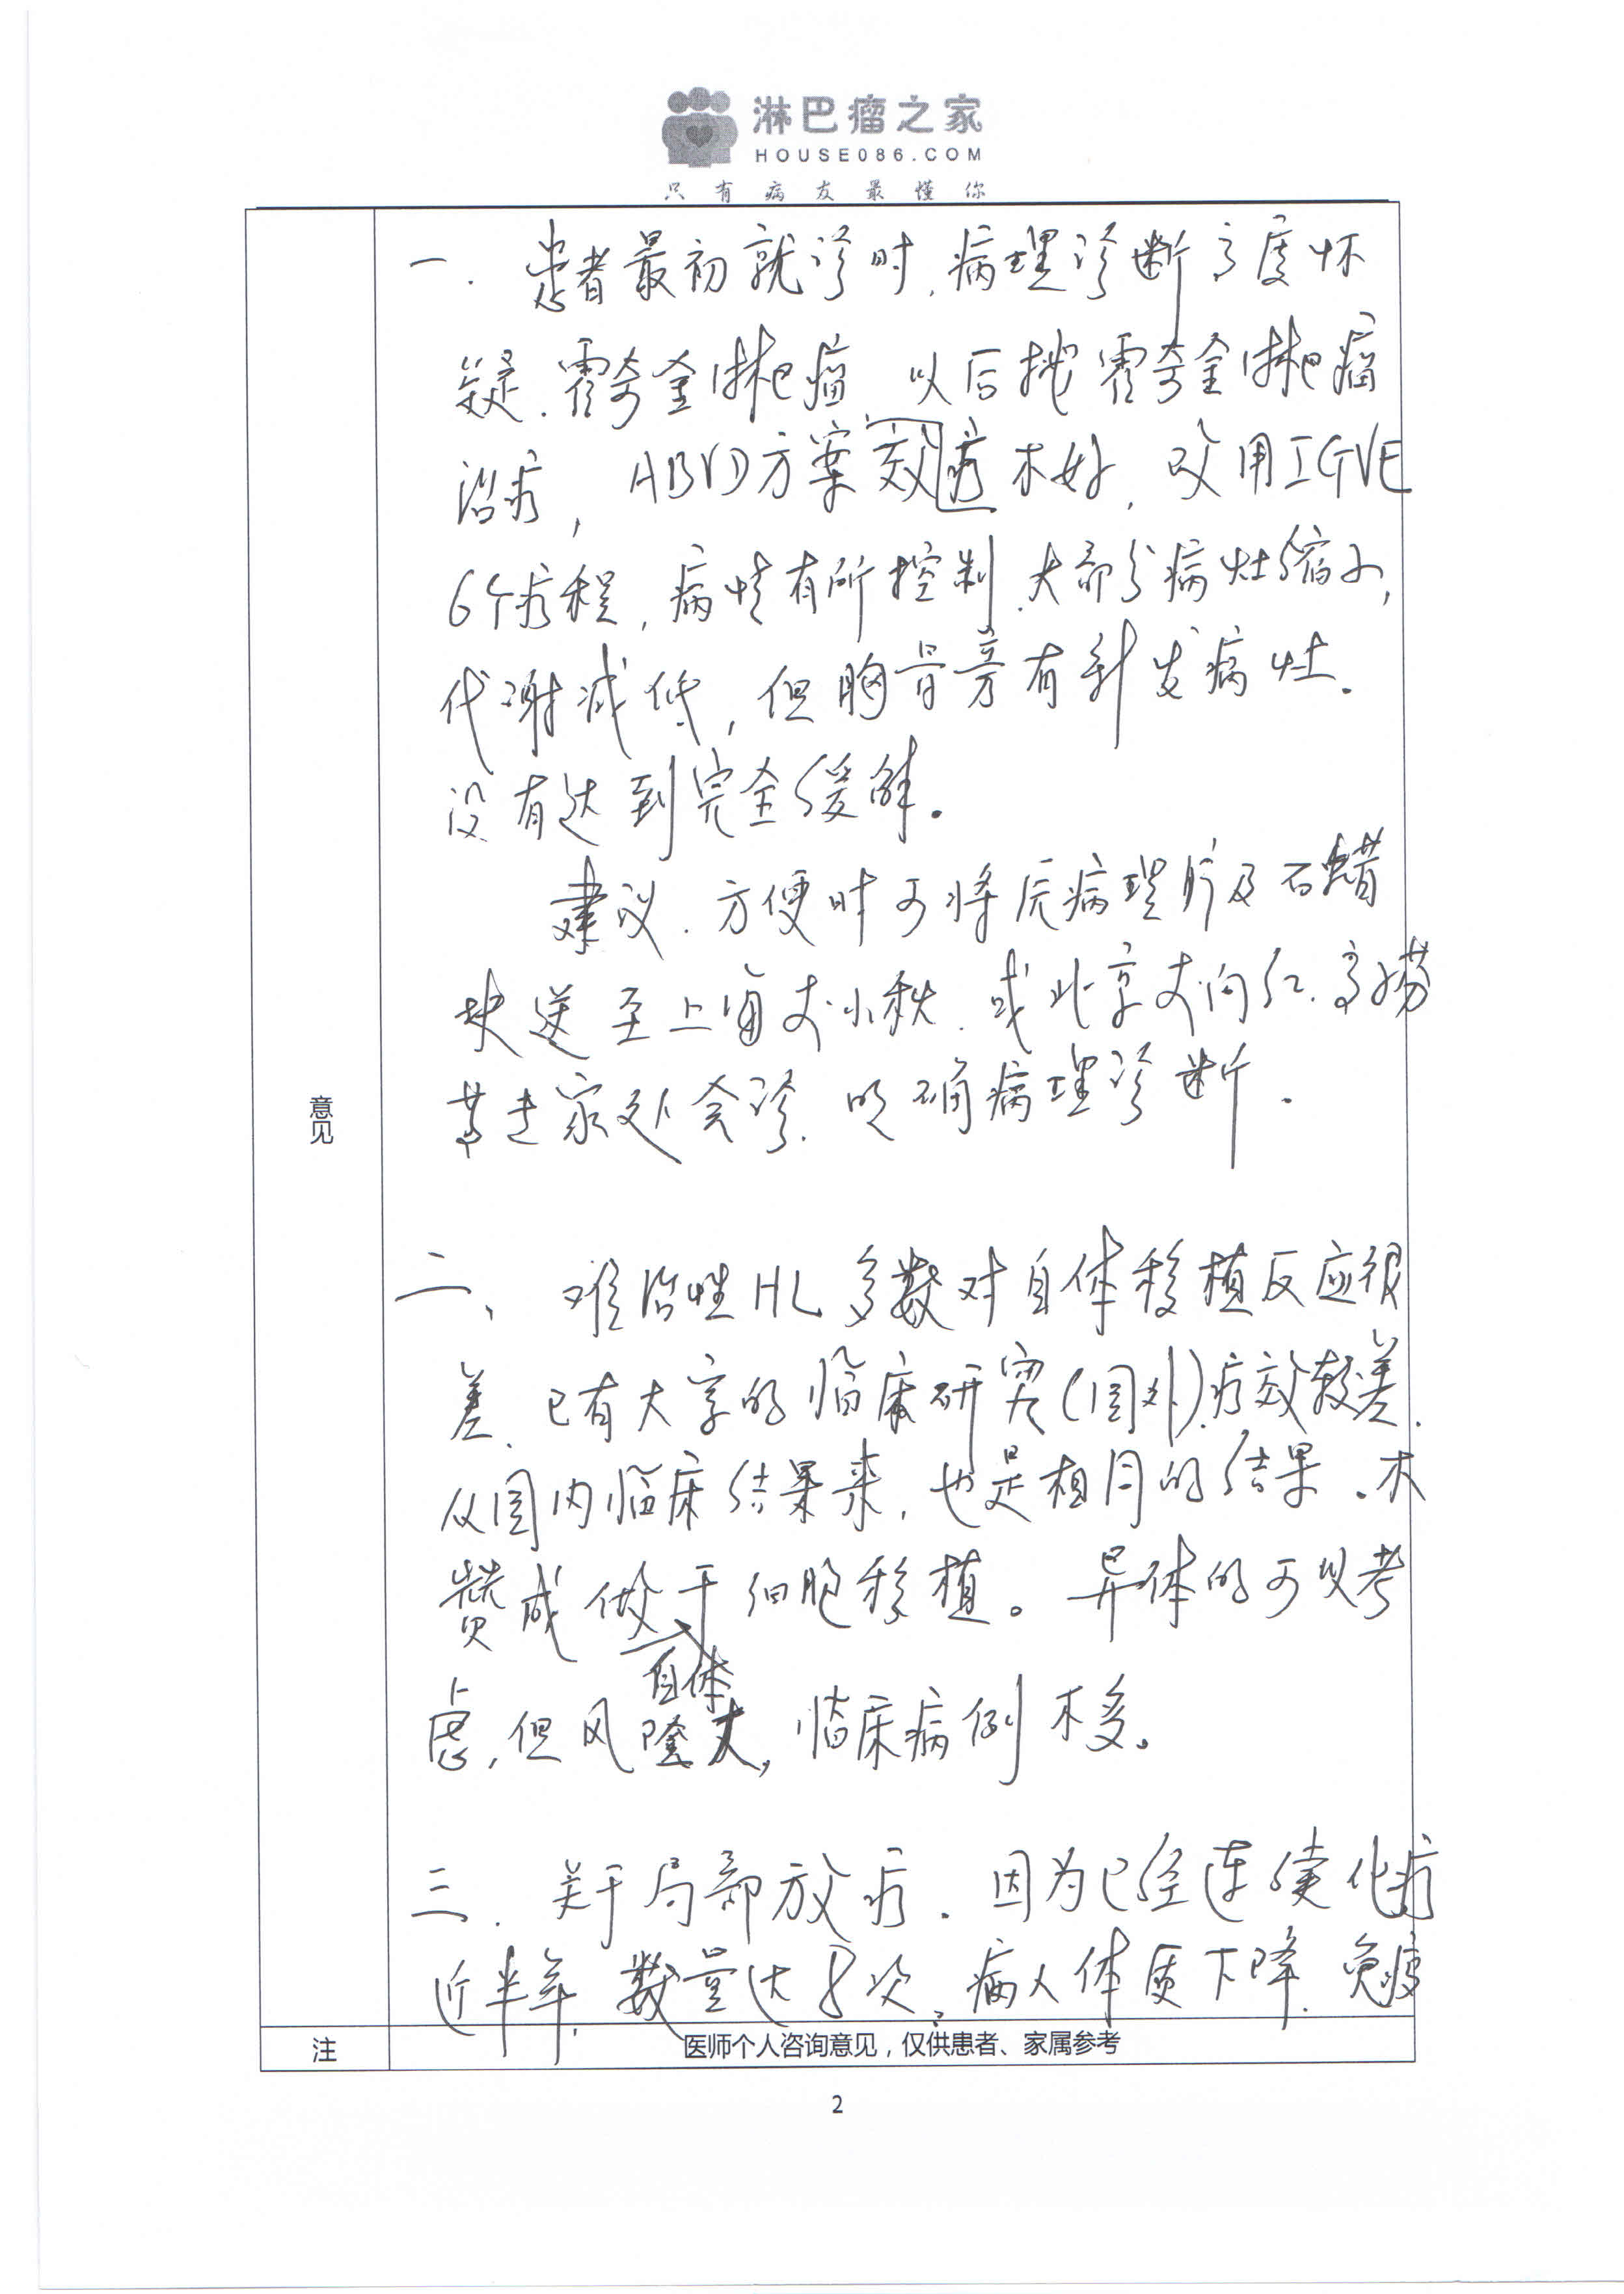 淋巴瘤之家
HOUSE086.COM
只有病友最懂你
一. 患者最初就诊时, 病理诊断高度怀
疑. 霍奇金淋巴瘤 以后按霍奇金淋巴瘤
治疗, ABVD方案疗效不好, 改用IGVE
6个疗程, 病情有所控制. 大部分病灶缩小,
代谢减低, 但胸骨旁有新发病灶.
没有达到完全缓解。
建议. 方便时可将原病理片及石蜡
块送至上海 小秋. 或北京 向红. 高子芬
等专家处会诊. 明确病理诊断.
意见
二、难治性HL多数对自体移植反应很
差. 已有大宗的临床研究(国外)疗效较差.
从国内临床结果来, 也是相同的结果. 不
赞成做自体干细胞移植。异体的可以考
虑, 但风险大, 临床病例不多。
三. 关于局部放疗. 因为已经连续化疗
近半年, 数量达8次, 病人体质下降. 免疫
注 医师个人咨询意见，仅供患者、家属参考
2